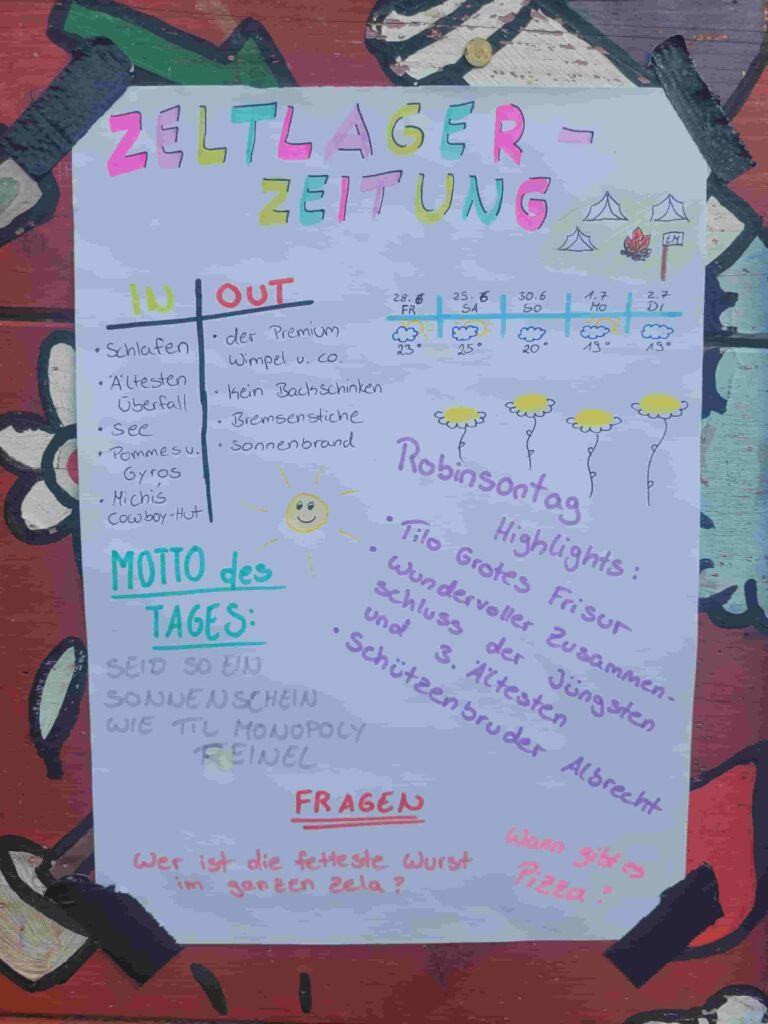 ZELTLAGER-
ZEITUNG
EM
IN
OUT
• Schlafen
• Ältesten
Überfall
• See
• Pommes u.
Gyros
• Michis
Cowboy-Hut
• der Premium
Wimpel u. co.
• Kein Backschinken
• Bremsenstiche
• Sonnenbrand
28.6 29.6 30.6 1.7 2.7
FR SA SO MO DI
23° 25° 20° 19° 19°
Robinsontag
Highlights:
• Tilo Grotes Frisur
• Wundervoller Zusammen-
schluss der Jüngsten
und 3. Ältesten
• Schützenbruder Albrecht
MOTTO des
TAGES:
SEID SO EIN
SONNENSCHEIN
WIE TIL MONOPOLY
REINEL
FRAGEN
Wer ist die fetteste Wurst
im ganzen Zela?
Wann gibt es
Pizza?